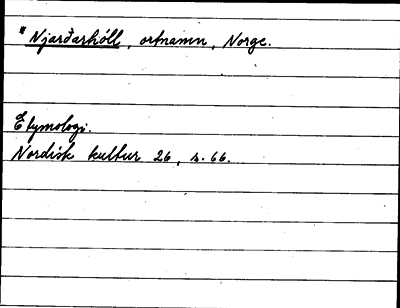 * Njarðarhóll, ortnamn, Norge.
Etymologi.
Nordisk kultur 26, s. 66.